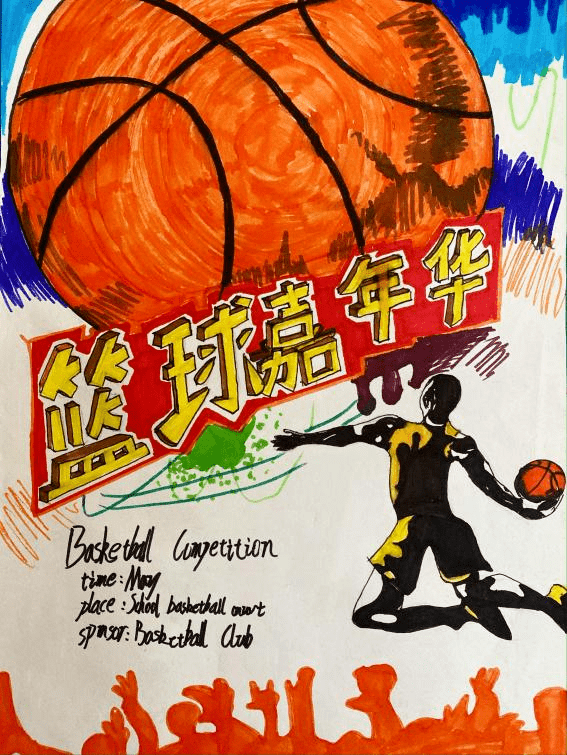 篮球嘉年华
Basketball Competition
time: May
place: School basketball court
sponsor: Basketball Club